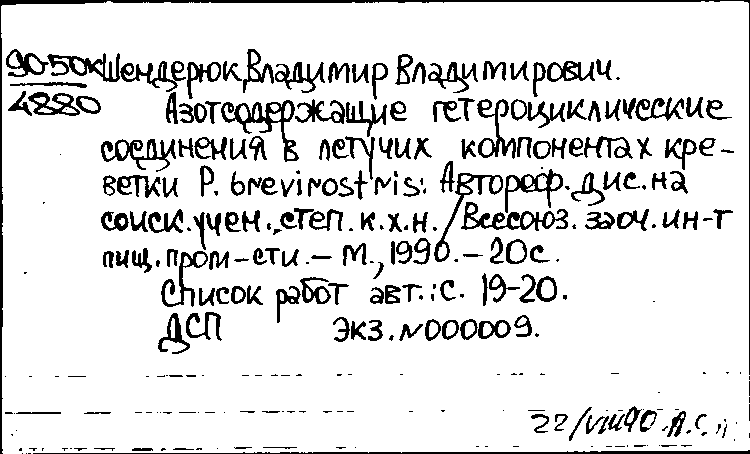 90-50к Шендерюк, Владимир Владимирович.
4880 Азотсодержащие гетероциклические
соединения в летучих компонентах кре-
ветки P. brevirostris: Автореф. дис. на
соиск. учен. степ. к.х.н. / Всесоюз. заоч. ин-т
пищ. пром-сти. - М., 1990. - 20 с.
Список работ авт.: с. 19-20.
ДСП Экз. N 000009.
22/VIII 90. А.С.